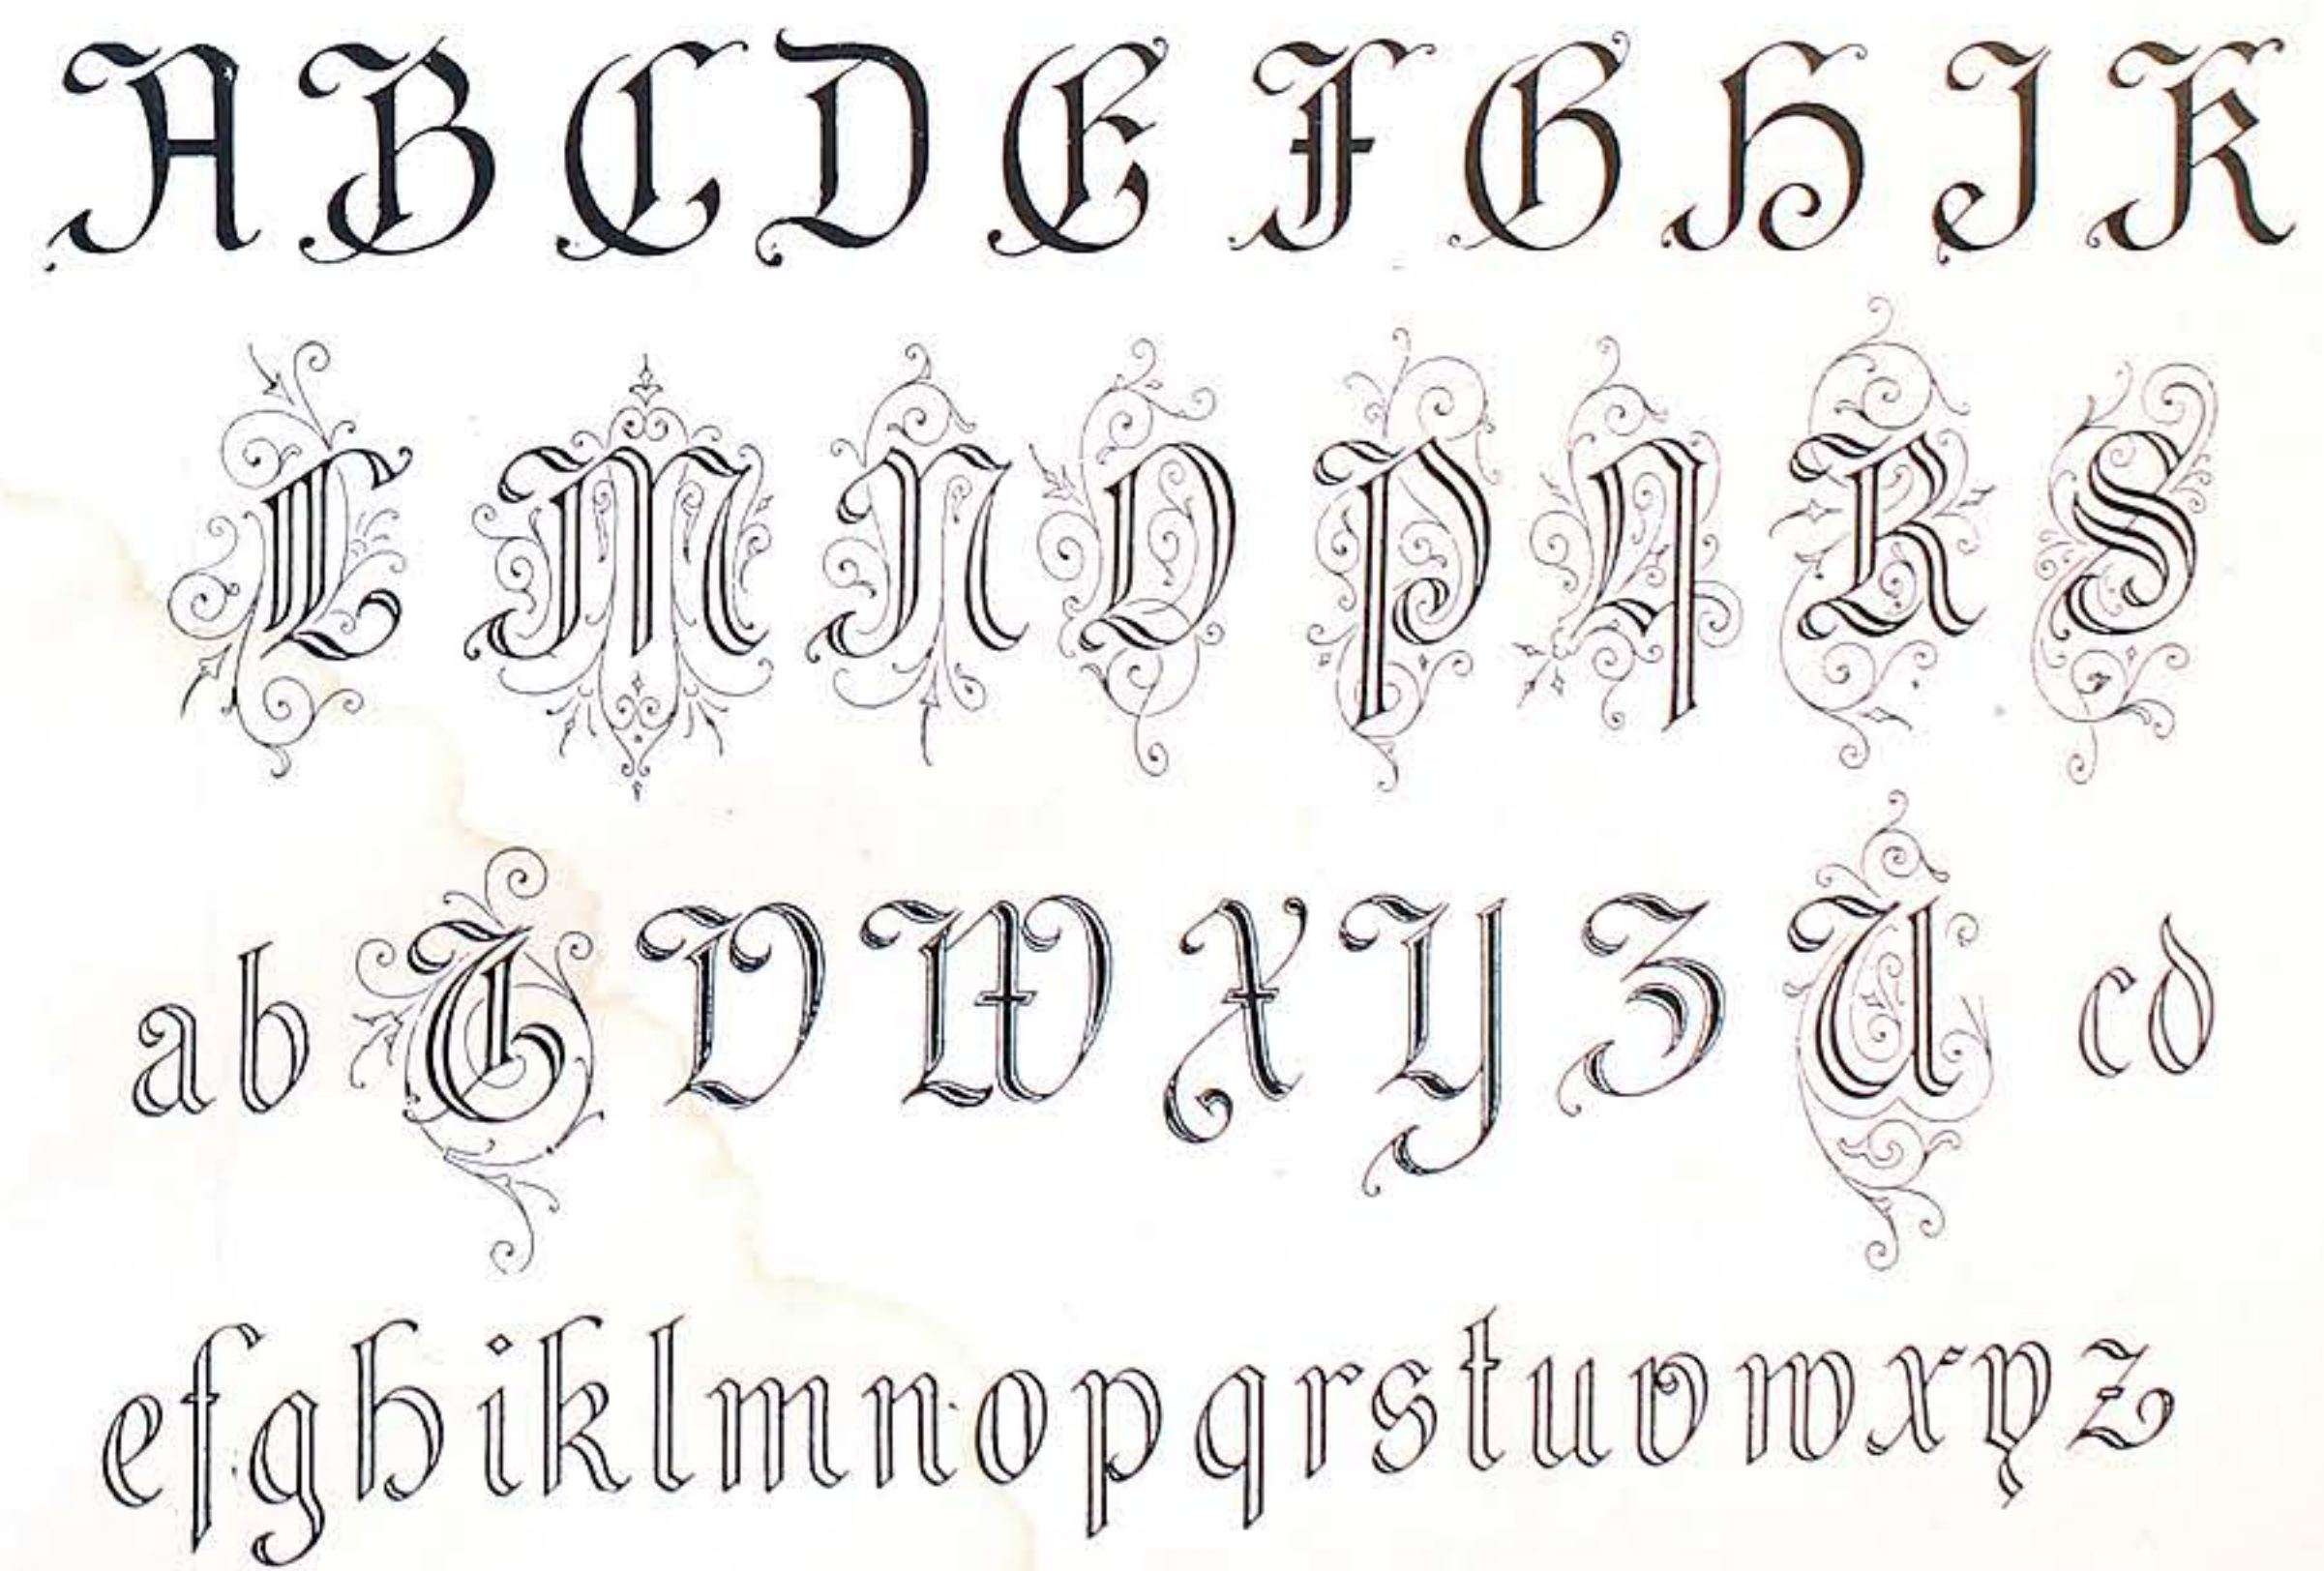 A B C D E F G H I K
L M N O P Q R S
a b T V W X Y Z U c d
e f g h i k l m n o p q r s t u v w x y z